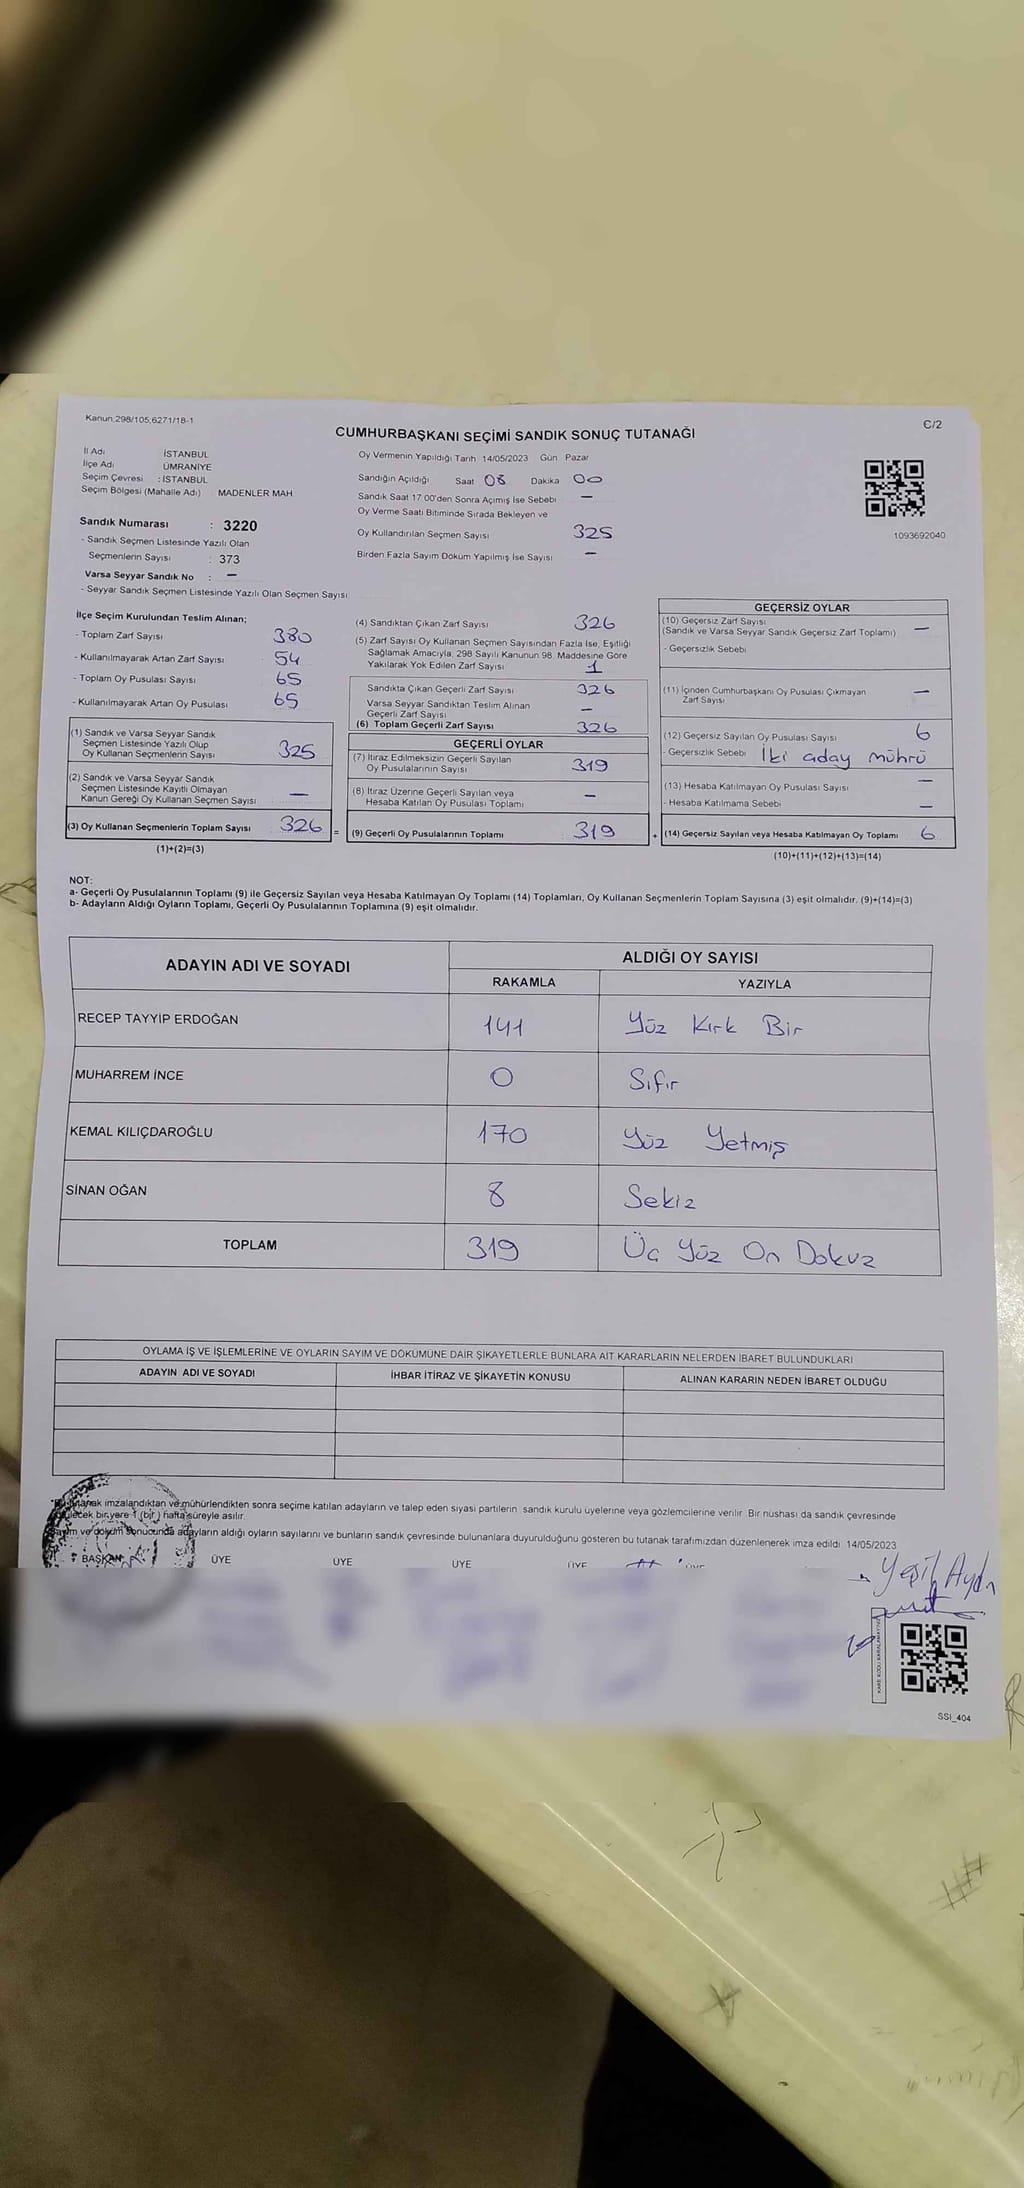 Kanun,298/105,6271/18-1
C/2
CUMHURBAŞKANI SEÇİMİ SANDIK SONUÇ TUTANAĞI
İl Adı İSTANBUL
İlçe Adı ÜMRANİYE
Seçim Çevresi : İSTANBUL
Seçim Bölgesi (Mahalle Adı) MADENLER MAH
Sandık Numarası : 3220
- Sandık Seçmen Listesinde Yazılı Olan
Seçmenlerin Sayısı : 373
Varsa Seyyar Sandık No : —
- Seyyar Sandık Seçmen Listesinde Yazılı Olan Seçmen Sayısı
Oy Vermenin Yapıldığı Tarih 14/05/2023 Gün Pazar
Sandığın Açıldığı Saat 08 Dakika 00
Sandık Saat 17.00'den Sonra Açımış İse Sebebi —
Oy Verme Saati Bitiminde Sırada Bekleyen ve
Oy Kullandırılan Seçmen Sayısı 325
Birden Fazla Sayım Döküm Yapılmış İse Sayısı —
1093692040
İlçe Seçim Kurulundan Teslim Alınan;
- Toplam Zarf Sayısı 380
- Kullanılmayarak Artan Zarf Sayısı 54
- Toplam Oy Pusulası Sayısı 65
- Kullanılmayarak Artan Oy Pusulası 65
(1) Sandık ve Varsa Seyyar Sandık
Seçmen Listesinde Yazılı Olup
Oy Kullanan Seçmenlerin Sayısı 325
(2) Sandık ve Varsa Seyyar Sandık
Seçmen Listesinde Kayıtlı Olmayan
Kanun Gereği Oy Kullanan Seçmen Sayısı —
(3) Oy Kullanan Seçmenlerin Toplam Sayısı 326 =
(1)+(2)=(3)
(4) Sandıktan Çıkan Zarf Sayısı 326
(5) Zarf Sayısı Oy Kullanan Seçmen Sayısından Fazla İse, Eşitliği
Sağlamak Amacıyla, 298 Sayılı Kanunun 98. Maddesine Göre
Yakılarak Yok Edilen Zarf Sayısı 1
Sandıkta Çıkan Geçerli Zarf Sayısı 326
Varsa Seyyar Sandıktan Teslim Alınan
Geçerli Zarf Sayısı —
(6) Toplam Geçerli Zarf Sayısı 326
GEÇERLİ OYLAR
(7) İtiraz Edilmeksizin Geçerli Sayılan
Oy Pusulalarının Sayısı 319
(8) İtiraz Üzerine Geçerli Sayılan veya
Hesaba Katılan Oy Pusulası Toplamı —
(9) Geçerli Oy Pusulalarının Toplamı 319 +
GEÇERSİZ OYLAR
(10) Geçersiz Zarf Sayısı —
(Sandık ve Varsa Seyyar Sandık Geçersiz Zarf Toplamı)
- Geçersizlik Sebebi
(11) İçinden Cumhurbaşkanı Oy Pusulası Çıkmayan —
Zarf Sayısı
(12) Geçersiz Sayılan Oy Pusulası Sayısı 6
- Geçersizlik Sebebi İki aday mührü
(13) Hesaba Katılmayan Oy Pusulası Sayısı —
- Hesaba Katılmama Sebebi —
(14) Geçersiz Sayılan veya Hesaba Katılmayan Oy Toplamı 6
(10)+(11)+(12)+(13)=(14)
NOT:
a- Geçerli Oy Pusulalarının Toplamı (9) ile Geçersiz Sayılan veya Hesaba Katılmayan Oy Toplamı (14) Toplamları, Oy Kullanan Seçmenlerin Toplam Sayısına (3) eşit olmalıdır. (9)+(14)=(3)
b- Adayların Aldığı Oyların Toplamı, Geçerli Oy Pusulalarının Toplamına (9) eşit olmalıdır.
ADAYIN ADI VE SOYADI
ALDIĞI OY SAYISI
RAKAMLA YAZIYLA
RECEP TAYYİP ERDOĞAN 141 Yüz Kırk Bir
MUHARREM İNCE 0 Sıfır
KEMAL KILIÇDAROĞLU 170 Yüz Yetmiş
SİNAN OĞAN 8 Sekiz
TOPLAM 319 Üç Yüz On Dokuz
OYLAMA İŞ VE İŞLEMLERİNE VE OYLARIN SAYIM VE DÖKÜMÜNE DAİR ŞİKAYETLERLE BUNLARA AİT KARARLARIN NELERDEN İBARET BULUNDUKLARI
ADAYIN ADI VE SOYADI İHBAR İTİRAZ VE ŞİKAYETİN KONUSU ALINAN KARARIN NEDEN İBARET OLDUĞU
tutanak imzalandıktan ve mühürlendikten sonra seçime katılan adayların ve talep eden siyasi partilerin sandık kurulu üyelerine veya gözlemcilerine verilir. Bir nüshası da sandık çevresinde
bir yere 1 (bir) hafta süreyle asılır.
ve döküm sonucunda adayların aldığı oyların sayılarını ve bunların sandık çevresinde bulunanlara duyurulduğunu gösteren bu tutanak tarafımızdan düzenlenerek imza edildi 14/05/2023
BAŞKAN ÜYE ÜYE ÜYE ÜYE
Yeşil
SSI_404